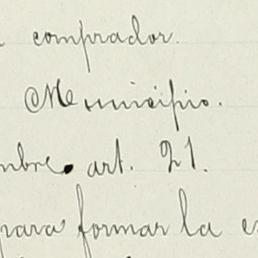 comprador.
Municipio.
mbre. art. 21.
para formar la e